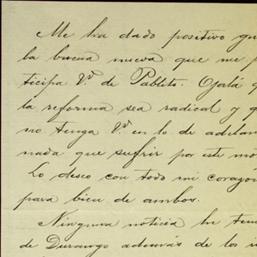 Me ha dado positivo gu
la buena nueva que me p
ticipa Vd. de Pablito. Ojalá q
la reforma sea radical y q
no tenga Vd. en lo de adelan
nada que sufrir por este mo
Lo deseo con todo mi corazón
para bien de ambos.
Ninguna noticia he ten
de Durango además de los